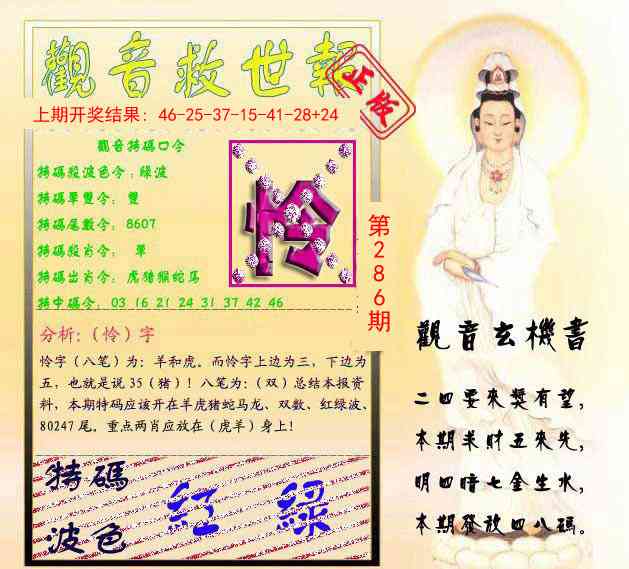 觀音救世報
正版
上期开奖结果：46-25-37-15-41-28+24
觀音特碼口令
特碼殺波色令：綠波
特碼單雙令： 雙
特碼尾數令： 8607
特碼殺肖令： 單
特碼出肖令： 虎猪猴蛇马
特中碼令： 03 16 21 24 31 37 42 46
怜
第286期
分析:（怜）字
怜字（八笔）为：羊和虎。而怜字上边为三，下边为
五，也就是说 35（猪）！八笔为：（双）总结本报资
料，本期特码应该开在羊虎猪蛇马龙、双数、红绿波、
80247 尾。重点两肖应放在（虎羊）身上！
特碼
波色
紅 綠
觀音玄機書
二四要來獎有望，
本期求財五來先，
明四暗七金生水，
本期發放四八碼。